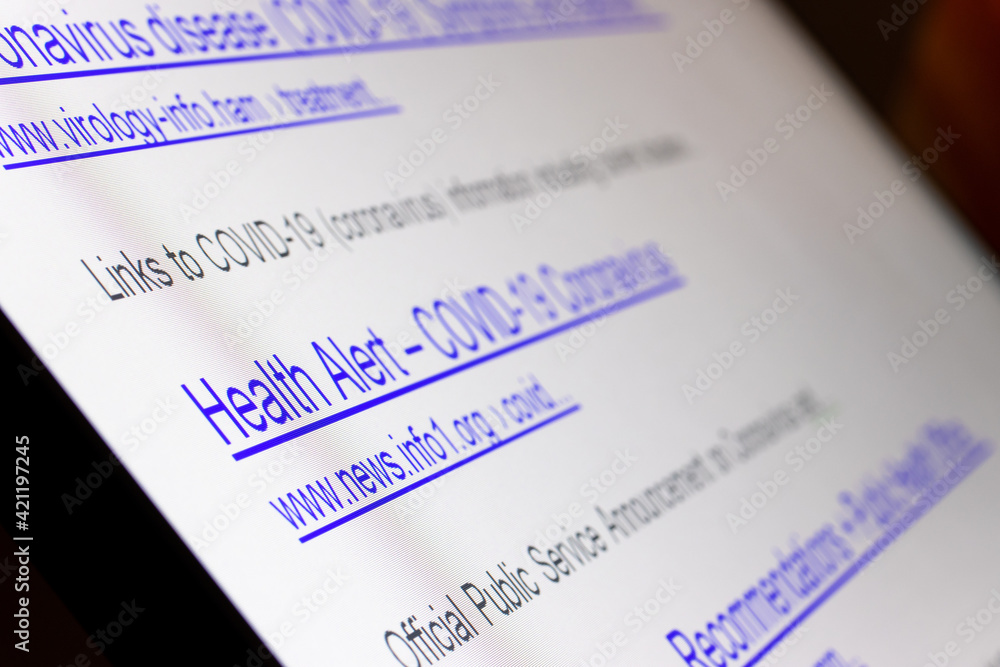 onavirus disease (COVID-19)
www.virology-info.ham › treatment...
Links to COVID-19 (coronavirus) information
Health Alert – COVID-19 Coronavirus
www.news.info1.org › covid...
Official Public Service Announcement on
Recommendations • Public Health
Adobe Stock | #421197245